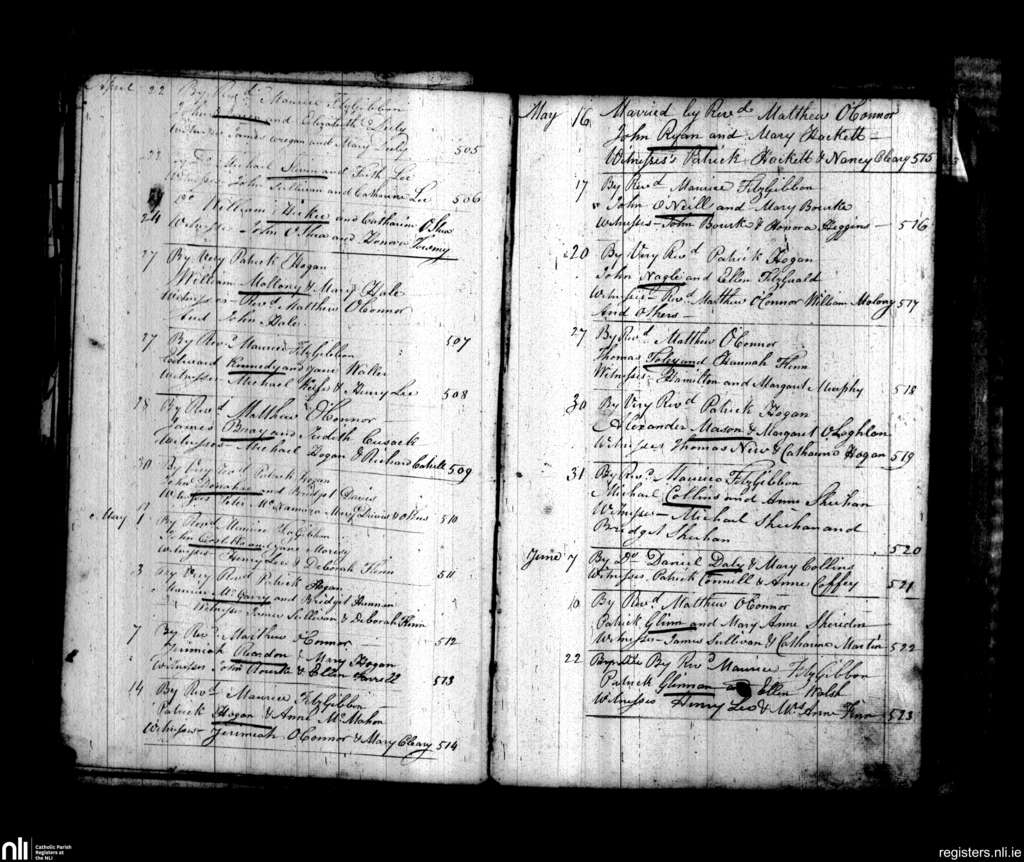 April 22 By Revd Maurice FitzGibbon
John and Elizabeth
Witnesses James and Mary 505
23 By Do Michael and Judith Lee
Witnesses John Sullivan and Catharine Lee 506
24 Do William Hickie and Catharine O'Shea
Witnesses John O'Shea and Honora
27 By Very Patrick Hogan
William Mallony & Mary Hale
Witnesses - Revd Matthew O'Connor
And John Hale 507
27 By Revd Maurice FitzGibbon
Edward Kennedy and Jane Waller
Witnesses - Michael Keeffe & Henry Lee 508
28 By Revd Matthew O'Connor
James Bray and Judith Cusack
Witnesses - Michael Hogan & Richard Cahill 509
30 By Very Revd Patrick Hogan
John Donohue and Bridget Davis
Witnesses Peter McNamara Mary Davis & others 510
May 1 By Revd Maurice FitzGibbon
John and Jane
Witnesses - Henry Lee & Deborah Finn 511
3 By Very Revd Patrick Hogan
McGarry and Bridget Hannan
Witnesses James Sullivan & Deborah Finn 512
7 By Revd Matthew O'Connor
Jerimiah Reardon & Mary Hogan
Witnesses - John Rourke & Ellen Farrell 513
14 By Revd Maurice FitzGibbon
Patrick Hogan & Anne McMahon
Witnesses - Jerimiah O'Connor & Mary Cleary 514
May 16 Married by Revd Matthew O'Connor
John Ryan and Mary Hackett -
Witnesses Patrick Hackett & Nancy Cleary 515
17 By Revd Maurice FitzGibbon
John O'Neill and Mary Bourke
Witnesses - John Bourke & Honora Higgins - 516
20 By Very Revd Patrick Hogan
John Nagle and Ellen Fitzgerald
Witnesses - Revd Matthew O'Connor William Molony 517
And Others -
27 By Revd Matthew O'Connor
Thomas Foley and Hannah Finn
Witnesses - Hamilton and Margaret Murphy 518
30 By Very Revd Patrick Hogan
Alexander Mason & Margaret O'Loghlan
Witnesses Thomas New & Catharine Hogan 519
31 By Revd Maurice FitzGibbon
Michael Collins and Anne Shehan
Witnesses - Michael Shehan and
Bridget Shehan 520
June 7 By Do Daniel Daly & Mary Collins
Witnesses, Patrick Connell & Anne Coffey 521
10 By Revd Matthew O'Connor
Patrick Glinn and Mary Anne Sheridan
Witnesses - James Sullivan & Catharine Martin 522
22 By Revd Maurice FitzGibbon
Patrick Glinnan Ellen Walsh
Witnesses Henry Lee & Mrs Anne Finn 523
nli Catholic Parish
Registers at
the NLI
registers.nli.ie